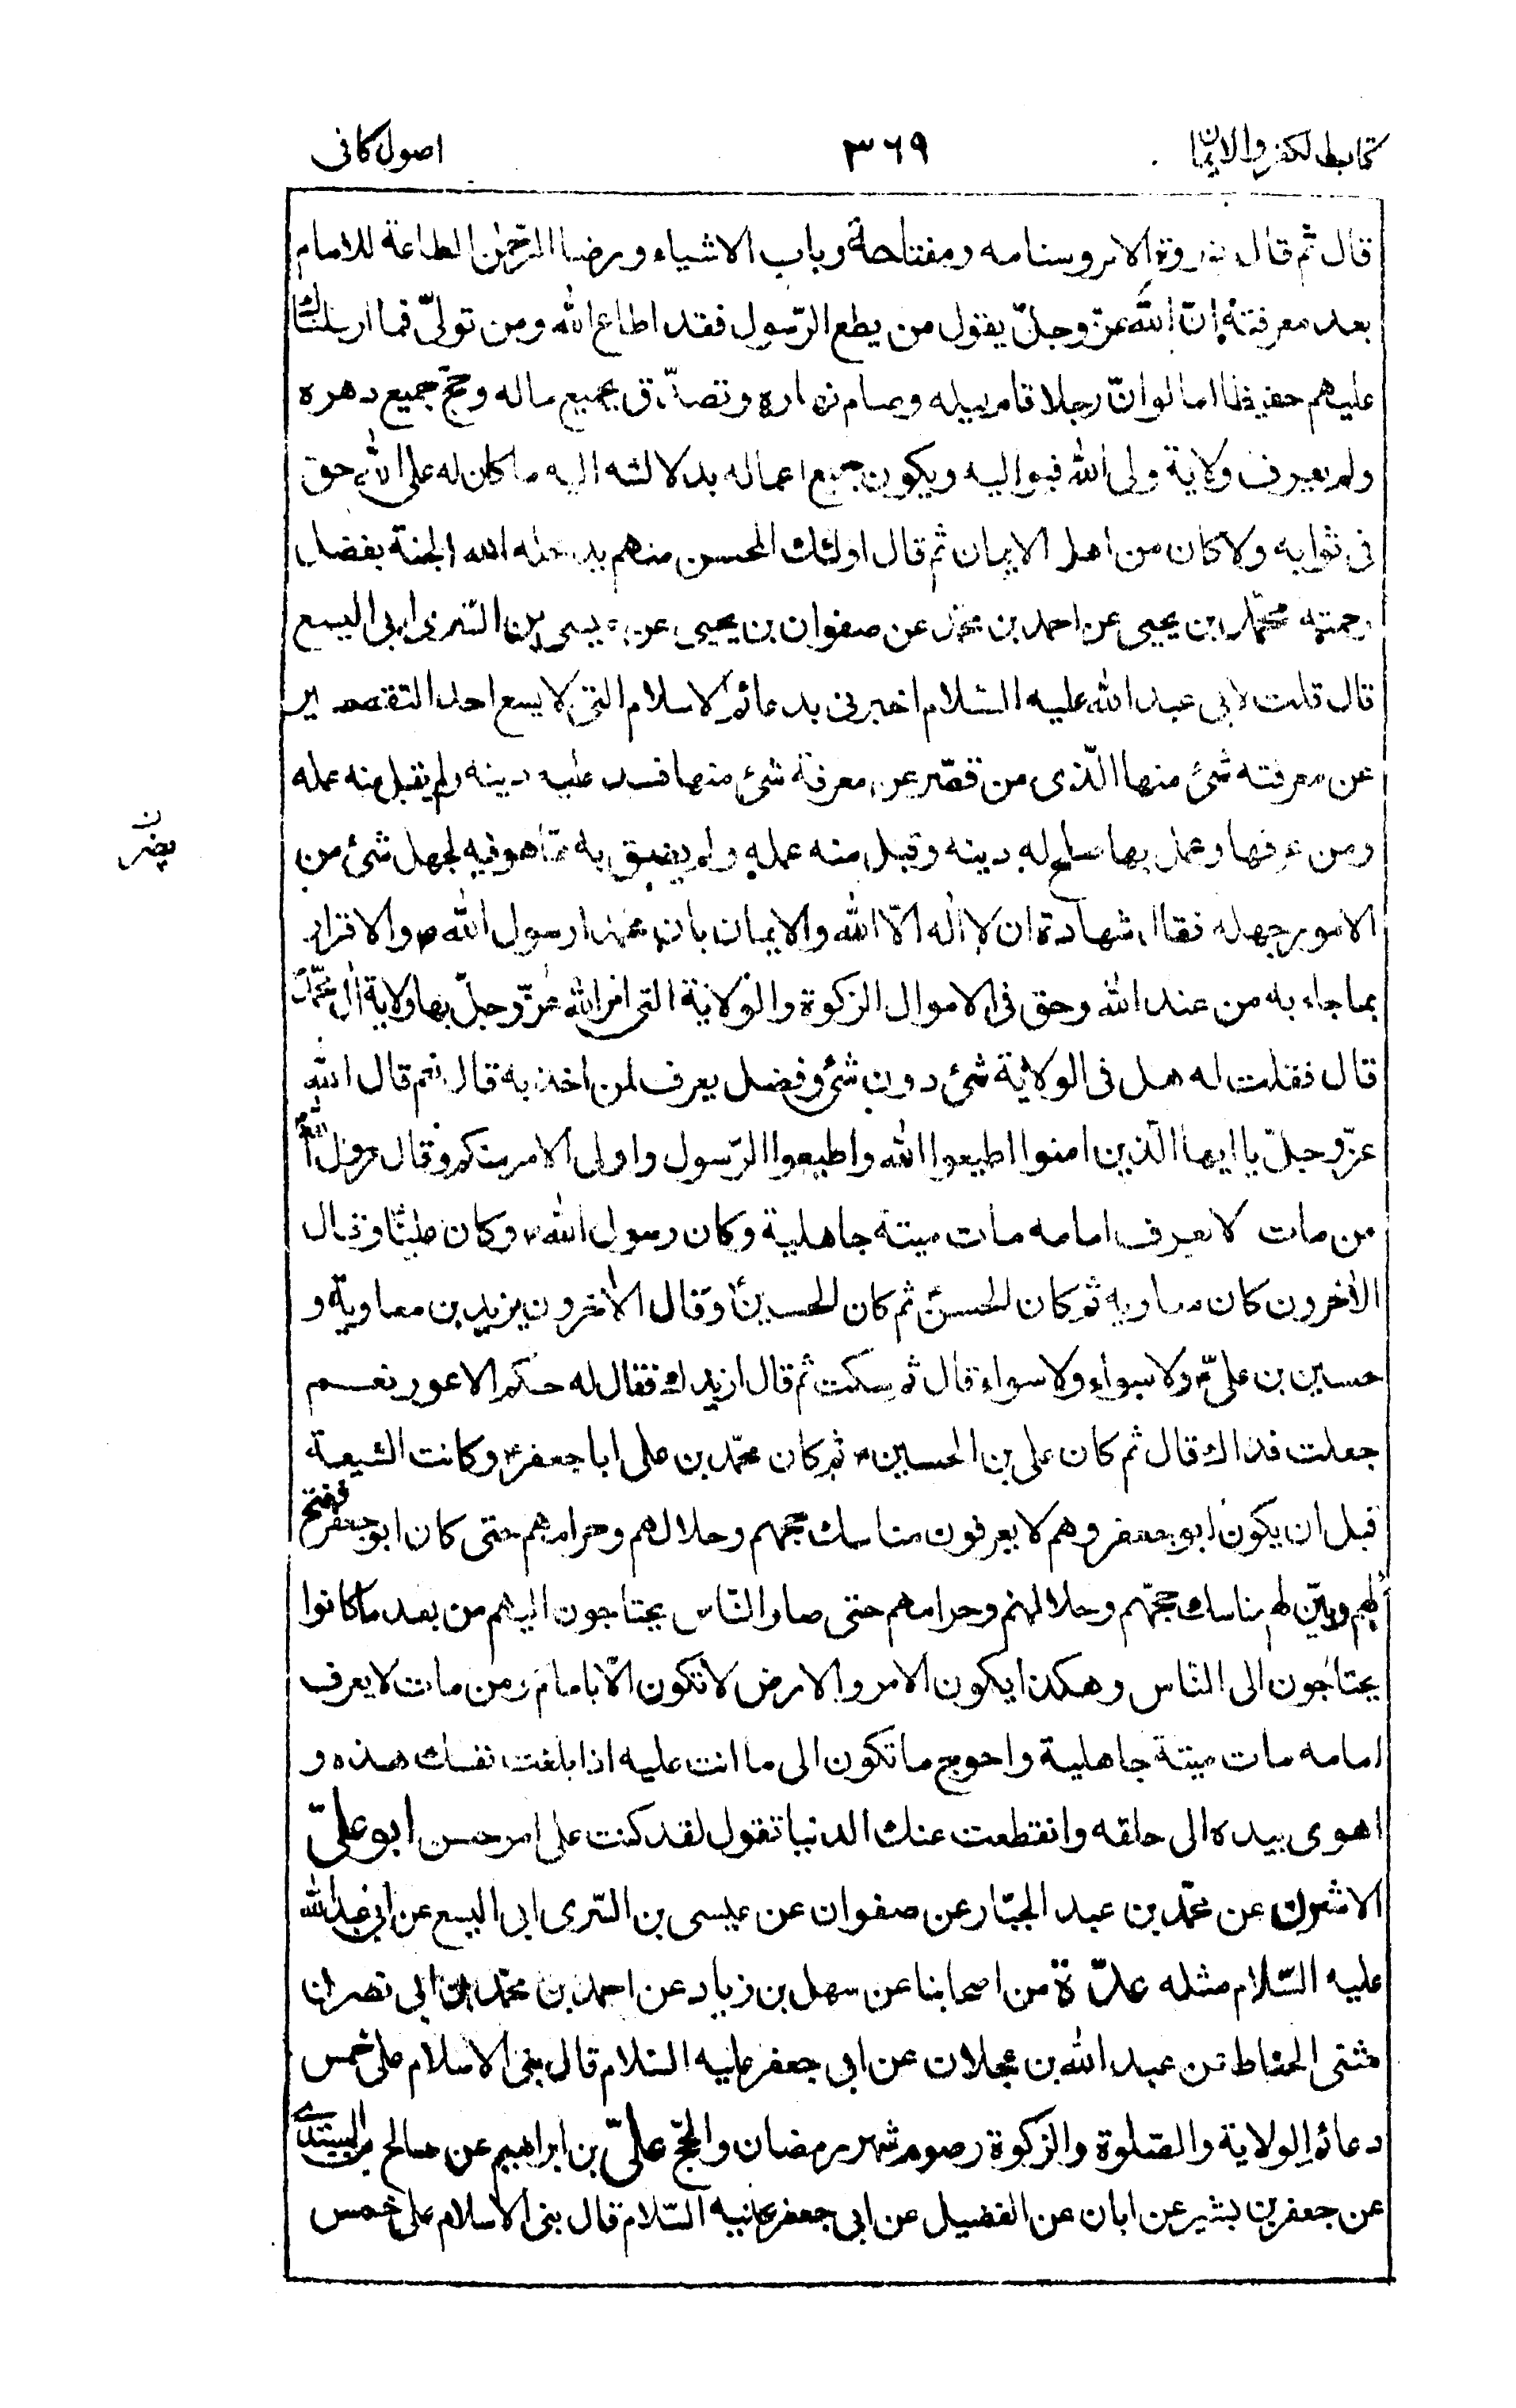 كتاب الكفر والايمان ٣٦٩ اصول كافى
قال ثم قال ذروة الامر وسنامه ومفتاحه وباب الاشياء ورضا الرّحمٰن الطاعة للامام
بعد معرفته انّ الله عزّ وجلّ يقول من يطع الرّسول فقد اطاع الله ومن تولّى فما ارسلناك
عليهم حفيظا اما لو انّ رجلا قام ليله وصام نهاره وتصدّق بجميع ماله وحجّ جميع دهره
ولم يعرف ولاية ولى الله فيواليه ويكون جميع اعماله بدلالته اليه ما كان له على الله حق
فى ثوابه ولا كان من اهل الايمان ثم قال اولئك المحسن منهم يدخله الله الجنة بفضل
رحمته محمّد بن يحيى عن احمد بن محمّد عن صفوان بن يحيى عن عيسى بن السّرى ابى اليسع
قال قلت لابى عبد الله عليه السّلام اخبرنى بدعائم الاسلام التى لا يسع احدا التقصير
عن معرفته شئ منها الّذى من قصّر عن معرفة شئ منها فسد عليه دينه ولم يقبل منه عمله
ومن عرفها وعمل بها صلح له دينه وقبل منه عمله ولم يضيق به ممّا هو فيه لجهل شئ من
يضرن
الامور جهله فقال شهادة ان لا اله الّا الله والايمان بان محمدا رسول الله ص والاقرار
بما جاء به من عند الله وحق فى الاموال الزكوة والولاية التى امر الله عزّ وجلّ بها ولاية ال محمّد
قال فقلت له هل فى الولاية شئ دون شئ وفضل يعرف لمن اخذ به قال نعم قال الله
عزّ وجلّ يا ايها الّذين امنوا اطيعوا الله واطيعوا الرّسول واولى الامر منكم وقال رسول الله
من مات لا يعرف امامه مات ميتة جاهلية وكان رسول الله ص وكان عليّا وقال
الأخرون كان معاويه ثم كان الحسن ثم كان الحسين وقال الأخرون يزيد بن معاوية و
حسين بن علىّ ولا سواء ولا سواء قال ثم سكت ثم قال ازيدك فقال له حكم الاعور نعم
جعلت فداك قال ثم كان على بن الحسين ثم كان محمّد بن على ابا جعفر وكانت الشيعة
قبل ان يكون ابو جعفر وهم لا يعرفون مناسك حجهم وحلالهم وحرامهم حتى كان ابو جعفر ففتح
لهم وبيّن لهم مناسك حجّهم وحلالهم وحرامهم حتى صار النّاس يحتاجون اليهم من بعد ما كانوا
يحتاجون الى النّاس وهكذا يكون الامر والارض لا تكون الّا بامام ومن مات لا يعرف
امامه مات ميتة جاهلية واحوج ما تكون الى ما انت عليه اذا بلغت نفسك هذه و
اهوى بيده الى حلقه وانقطعت عنك الدنيا تقول لقد كنت على امر حسن ابو علىّ
الاشعرى عن محمّد بن عبد الجبّار عن صفوان عن عيسى بن السّرى ابى اليسع عن ابى عبد الله
عليه السّلام مثله عدّة من اصحابنا عن سهل بن زياد عن احمد بن محمّد بن ابى نصر عن
مثنى الحنّاط عن عبد الله بن عجلان عن ابى جعفر عليه السّلام قال بنى الاسلام على خمس
دعائم الولاية والصّلوة والزكوة وصوم شهر رمضان والحجّ علىّ بن ابراهيم عن صالح بن السندى
عن جعفر بن بشير عن ابان عن الفضيل عن ابى جعفر عليه السّلام قال بنى الاسلام على خمس